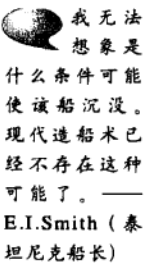 我无法
想象是
什么条件可能
使该船沉没。
现代造船术已
经不存在这种
可能了。——
E.I.Smith（泰
坦尼克船长）